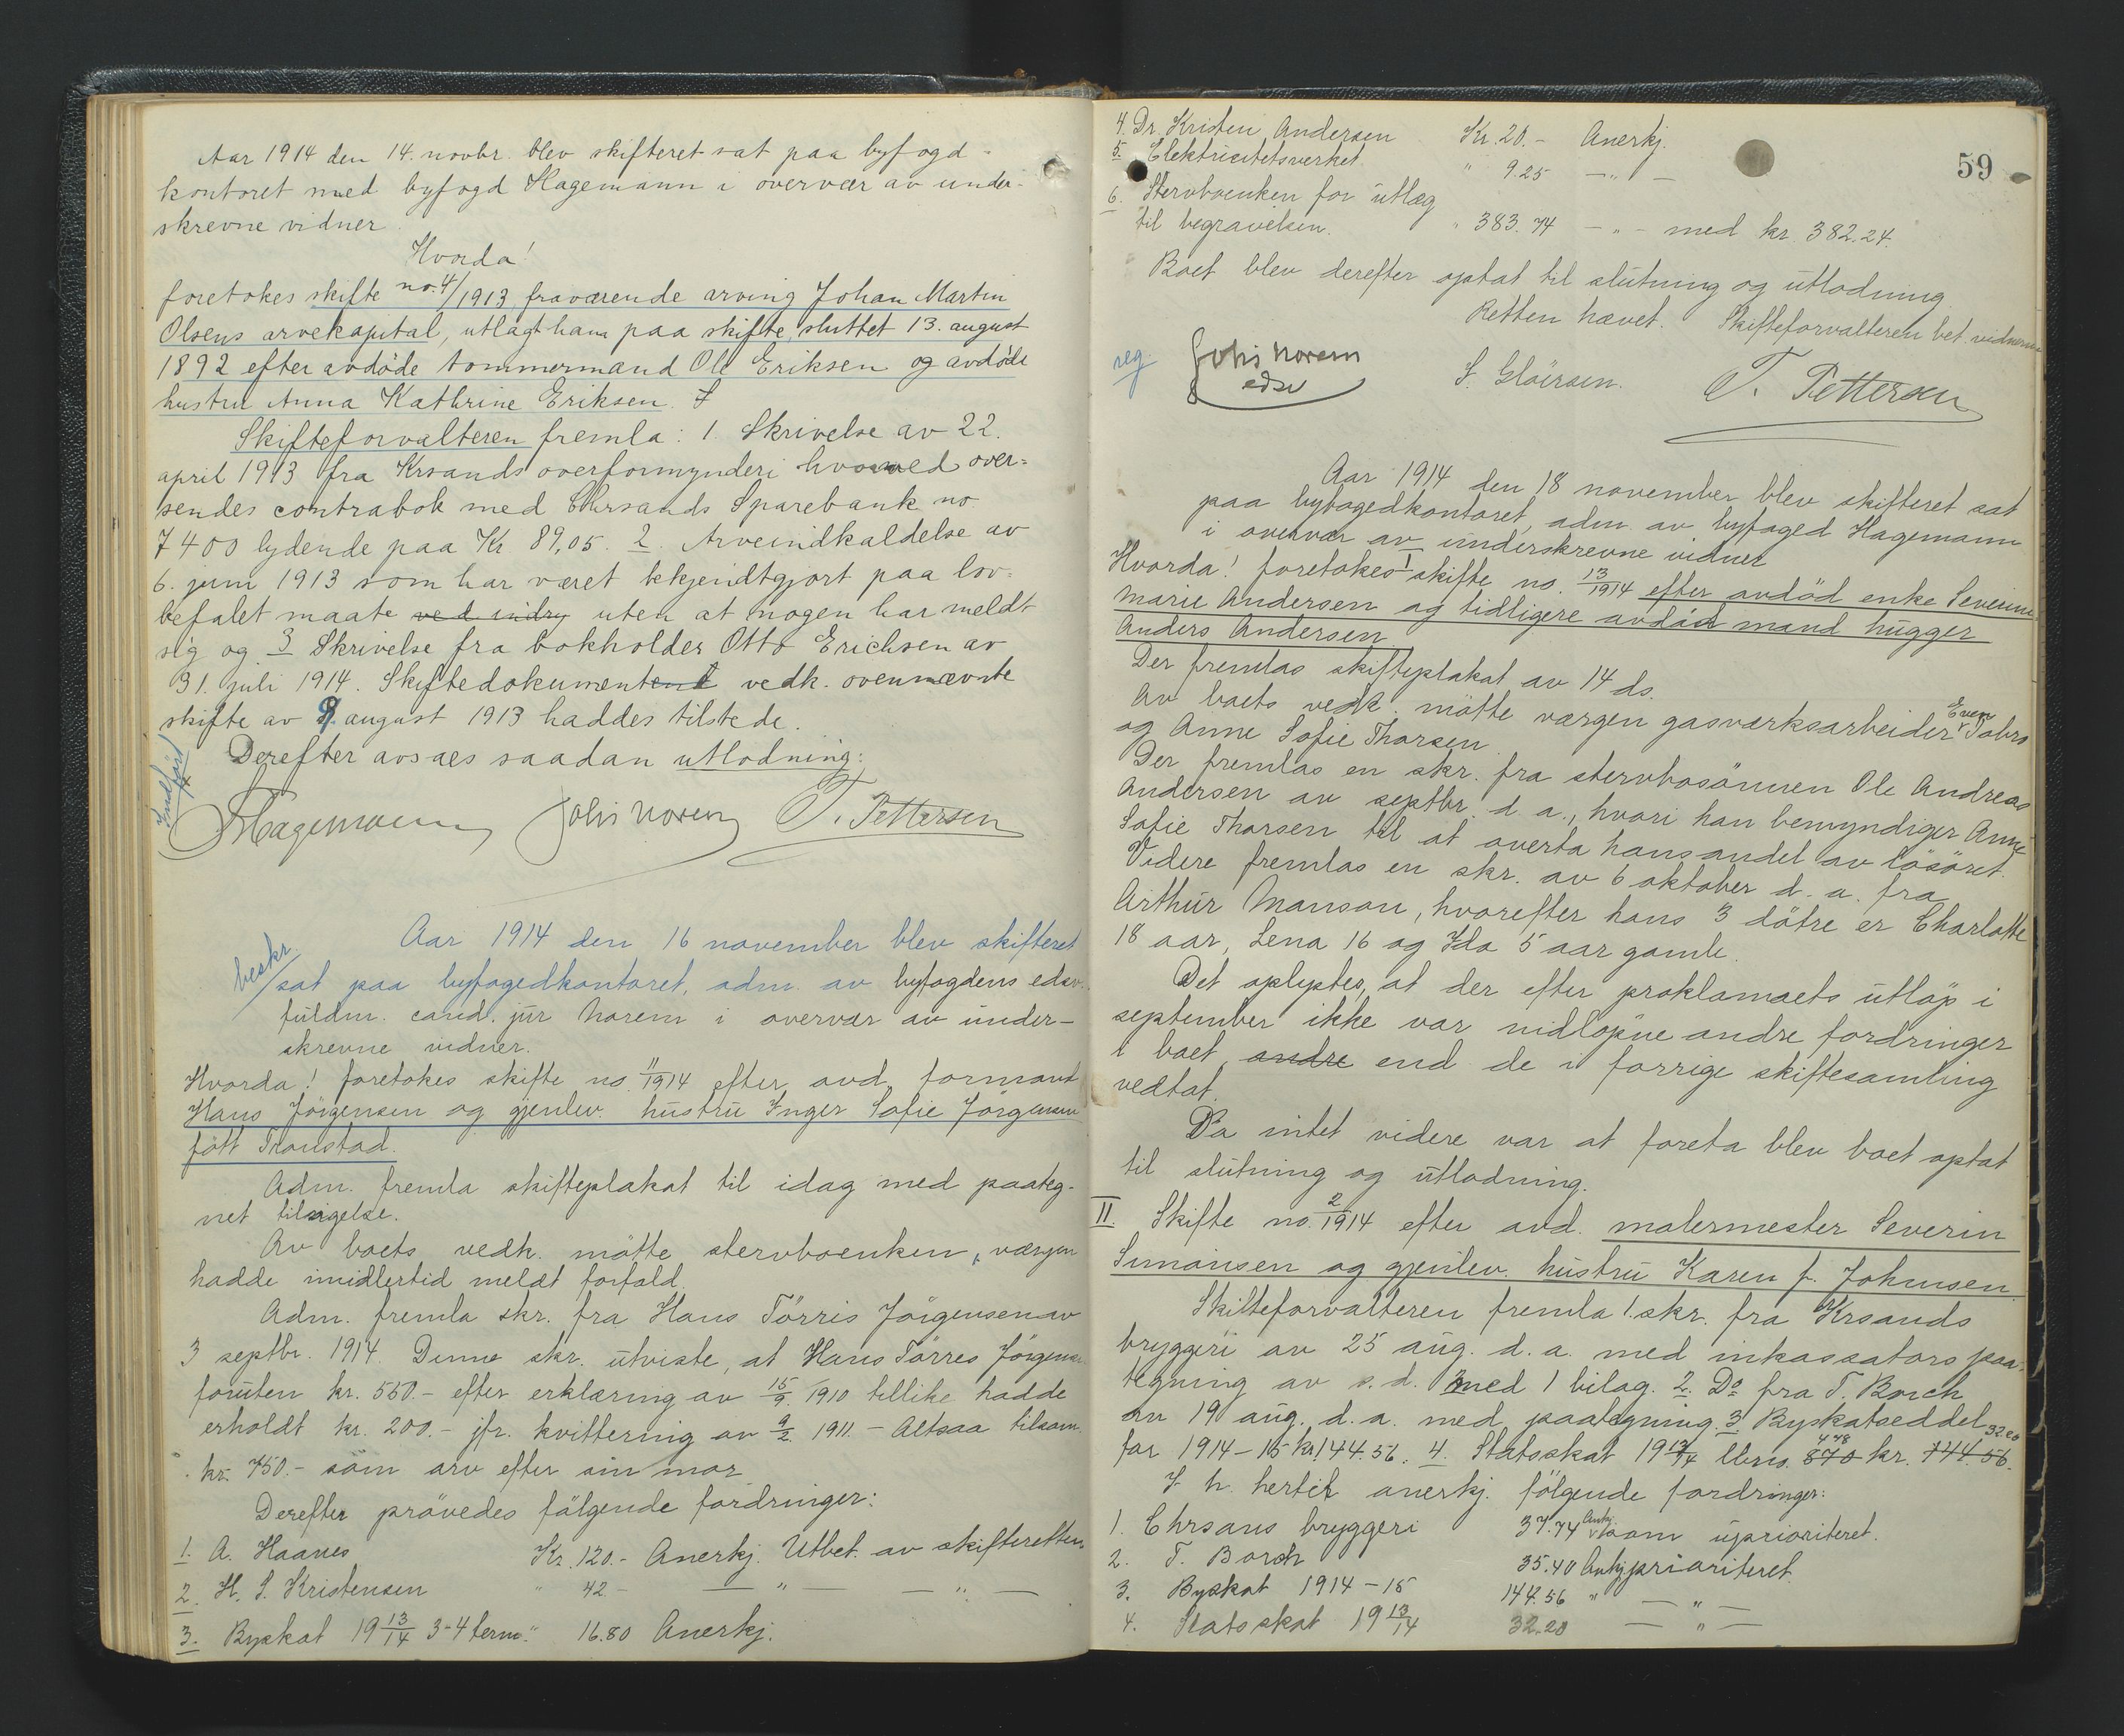 Aar 1914 den 14. novbr. blev skifteret sat paa byfogd-
kontoret med byfogd Hagemann i overvær av under-
skrevne vidner.
Hvorda!
foretokes skifte no. 4/1913 fraværende arving Johan Martin
Olsens arvekapital, utlagt ham paa skifte, sluttet 13. august
1892 efter avdøde tømmermand Ole Eriksen og avdøde
hustru Anna Kathrine Eriksen.
Skifteforvalteren fremla: 1. Skrivelse av 22.
april 1913 fra Krsands overformynderi hvorved over-
sendes contrabok med Chrsands Sparebank no
7400 lydende paa Kr 89,05. 2. Arveindkaldelse av
6. juni 1913 som har været bekjendtgjort paa lov-
befalet maate ved indry uten at nogen har meldt
sig og 3 Skrivelse fra bokholder Otto Erichsen av
31. juli 1914. Skiftedokument vedk. ovennævnte
skifte av 9. august 1913 haddes tilstede.
Derefter avsaes saadan utlodning:
Indført
Hagemann Johs Norem T. Pettersen
beskr.
Aar 1914 den 16 november blev skifteret
sat paa byfogedkontoret, adm. av byfogdens edsv.
fuldm. cand. jur Norem i overvær av under-
skrevne vidner.
Hvorda! foretokes skifte no. 11/1914 efter avd. formand
Hans Jörgensen og gjenlev. hustru Inger Sofie Jörgensen
født Tronstad.
Adm. fremla skifteplakat til idag med paateg-
net tilsigelse.
Av boets vedk. mötte stervboenken, værgen
hadde imidlertid meldt forfald.
Adm. fremla skr. fra Hans Törris Jörgensen av
3 septbr. 1914. Denne skr. utviste, at Hans Törres Jörgensen
foruten kr. 550.- efter erklæring av 15/9 1910 tillike hadde
erholdt kr. 200.- jfr. kvittering av 9/2. 1911. - Altsaa tilsam.
kr. 750.- som arv efter sin mor
Derefter prövedes fölgende fordringer:
1. A. Haanes Kr. 120.- Anerkj. Utbet. av skifteretten
2. H. S. Kristensen " 42.- — " — — " —
3. Byskat 19 13/14 3-4 term. " 16.80 Anerkj.
59
4. Dr. Kristen Andersen Kr. 20.- Anerkj.
5. Elektricitetsverket " 9.25 — " —
6. Stervboenken for utlæg
til begravelsen. " 383.74 - " - med kr. 382.24.
Boet blev derefter optat til slutning og utlodning.
Retten hævet. Skifteforvalteren bet. vidnerne
reg.
Johs Norem S. Glöersen. T. Pettersen
edsv
Aar 1914 den 18 november blev skifteret sat
paa byfogedkontoret, adm. av byfoged Hagemann
i overvær av underskrevne vidner
Hvorda! foretokes skifte no. 13/1914 efter avdöd enke Severine
Marie Andersen og tidligere avdöd mand hugger
Anders Andersen.
Der fremlas skifteplakat av 14 ds.
Av boets vedk. mötte værgen gasværksarbeider Even
og Anne Sofie Thorsen.
Der fremlas en skr. fra stervbosönnen Ole Andreas
Andersen av septbr. d. a., hvori han bemyndiger Anne
Sofie Thorsen til at overta hans andel av lösöret.
Videre fremlas en skr. av 6 oktober d. a. fra
Arthur Manson, hvorefter hans 3 dötre er Charlotte
18 aar, Lena 16 og Ida 5 aar gamle.
Det oplystes, at der efter proklamaets utlöp i
september ikke var indlöpne andre fordringer
i boet, andre end de i forrige skiftesamling
vedtat.
Da intet videre var at foreta blev boet optat
til slutning og utlodning.
II. Skifte no. 2/1914 efter avd. malermester Severin
Simonsen og gjenlev. hustru Karen f. Johnsen.
Skifteforvalteren fremla 1. skr. fra Krsands
bryggeri av 25 aug. d. a. med inkassators paa-
tegning av s. d. med 1 bilag. 2. Do fra T. Borch
av 19 aug. d. a. med paategning. 3. Byskatseddel
for 1914-15 kr. 144.56. 4. Statsskat 19 13/14 870 4 48 kr. 144.56. 32.20
I h. hertil anerkj. fölgende fordringer:
1. Chrsans bryggeri 37.74 Ankj. som uprioriteret.
2. T. Borch 35.40 Ankj prioriteret.
3. Byskat 1914-15 144.56 " — " —
4. Statsskat 19 13/14 32.20 — " —